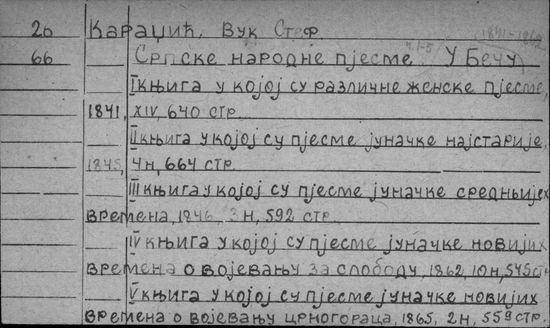 26 Караџић, Вук Стеф. 1841-1862
66 Српске народне пјесме ч.1-5 У Бечу
I књига у којој су различне женске пјесме,
1841, XIV, 640 стр.
II књига у којој су пјесме јуначке најстарије,
1845, 4н, 664 стр.
III књига у којој су пјесме јуначке средњијех
времена, 1846, 3н, 592 стр.
IV књига у којој су пјесме јуначке новијих
времена о војевању за слободу, 1862, 10н, 545 ст
V књига у којој су пјесме јуначке новијих
времена о војевању црногораца, 1865, 2н, 559 стр.